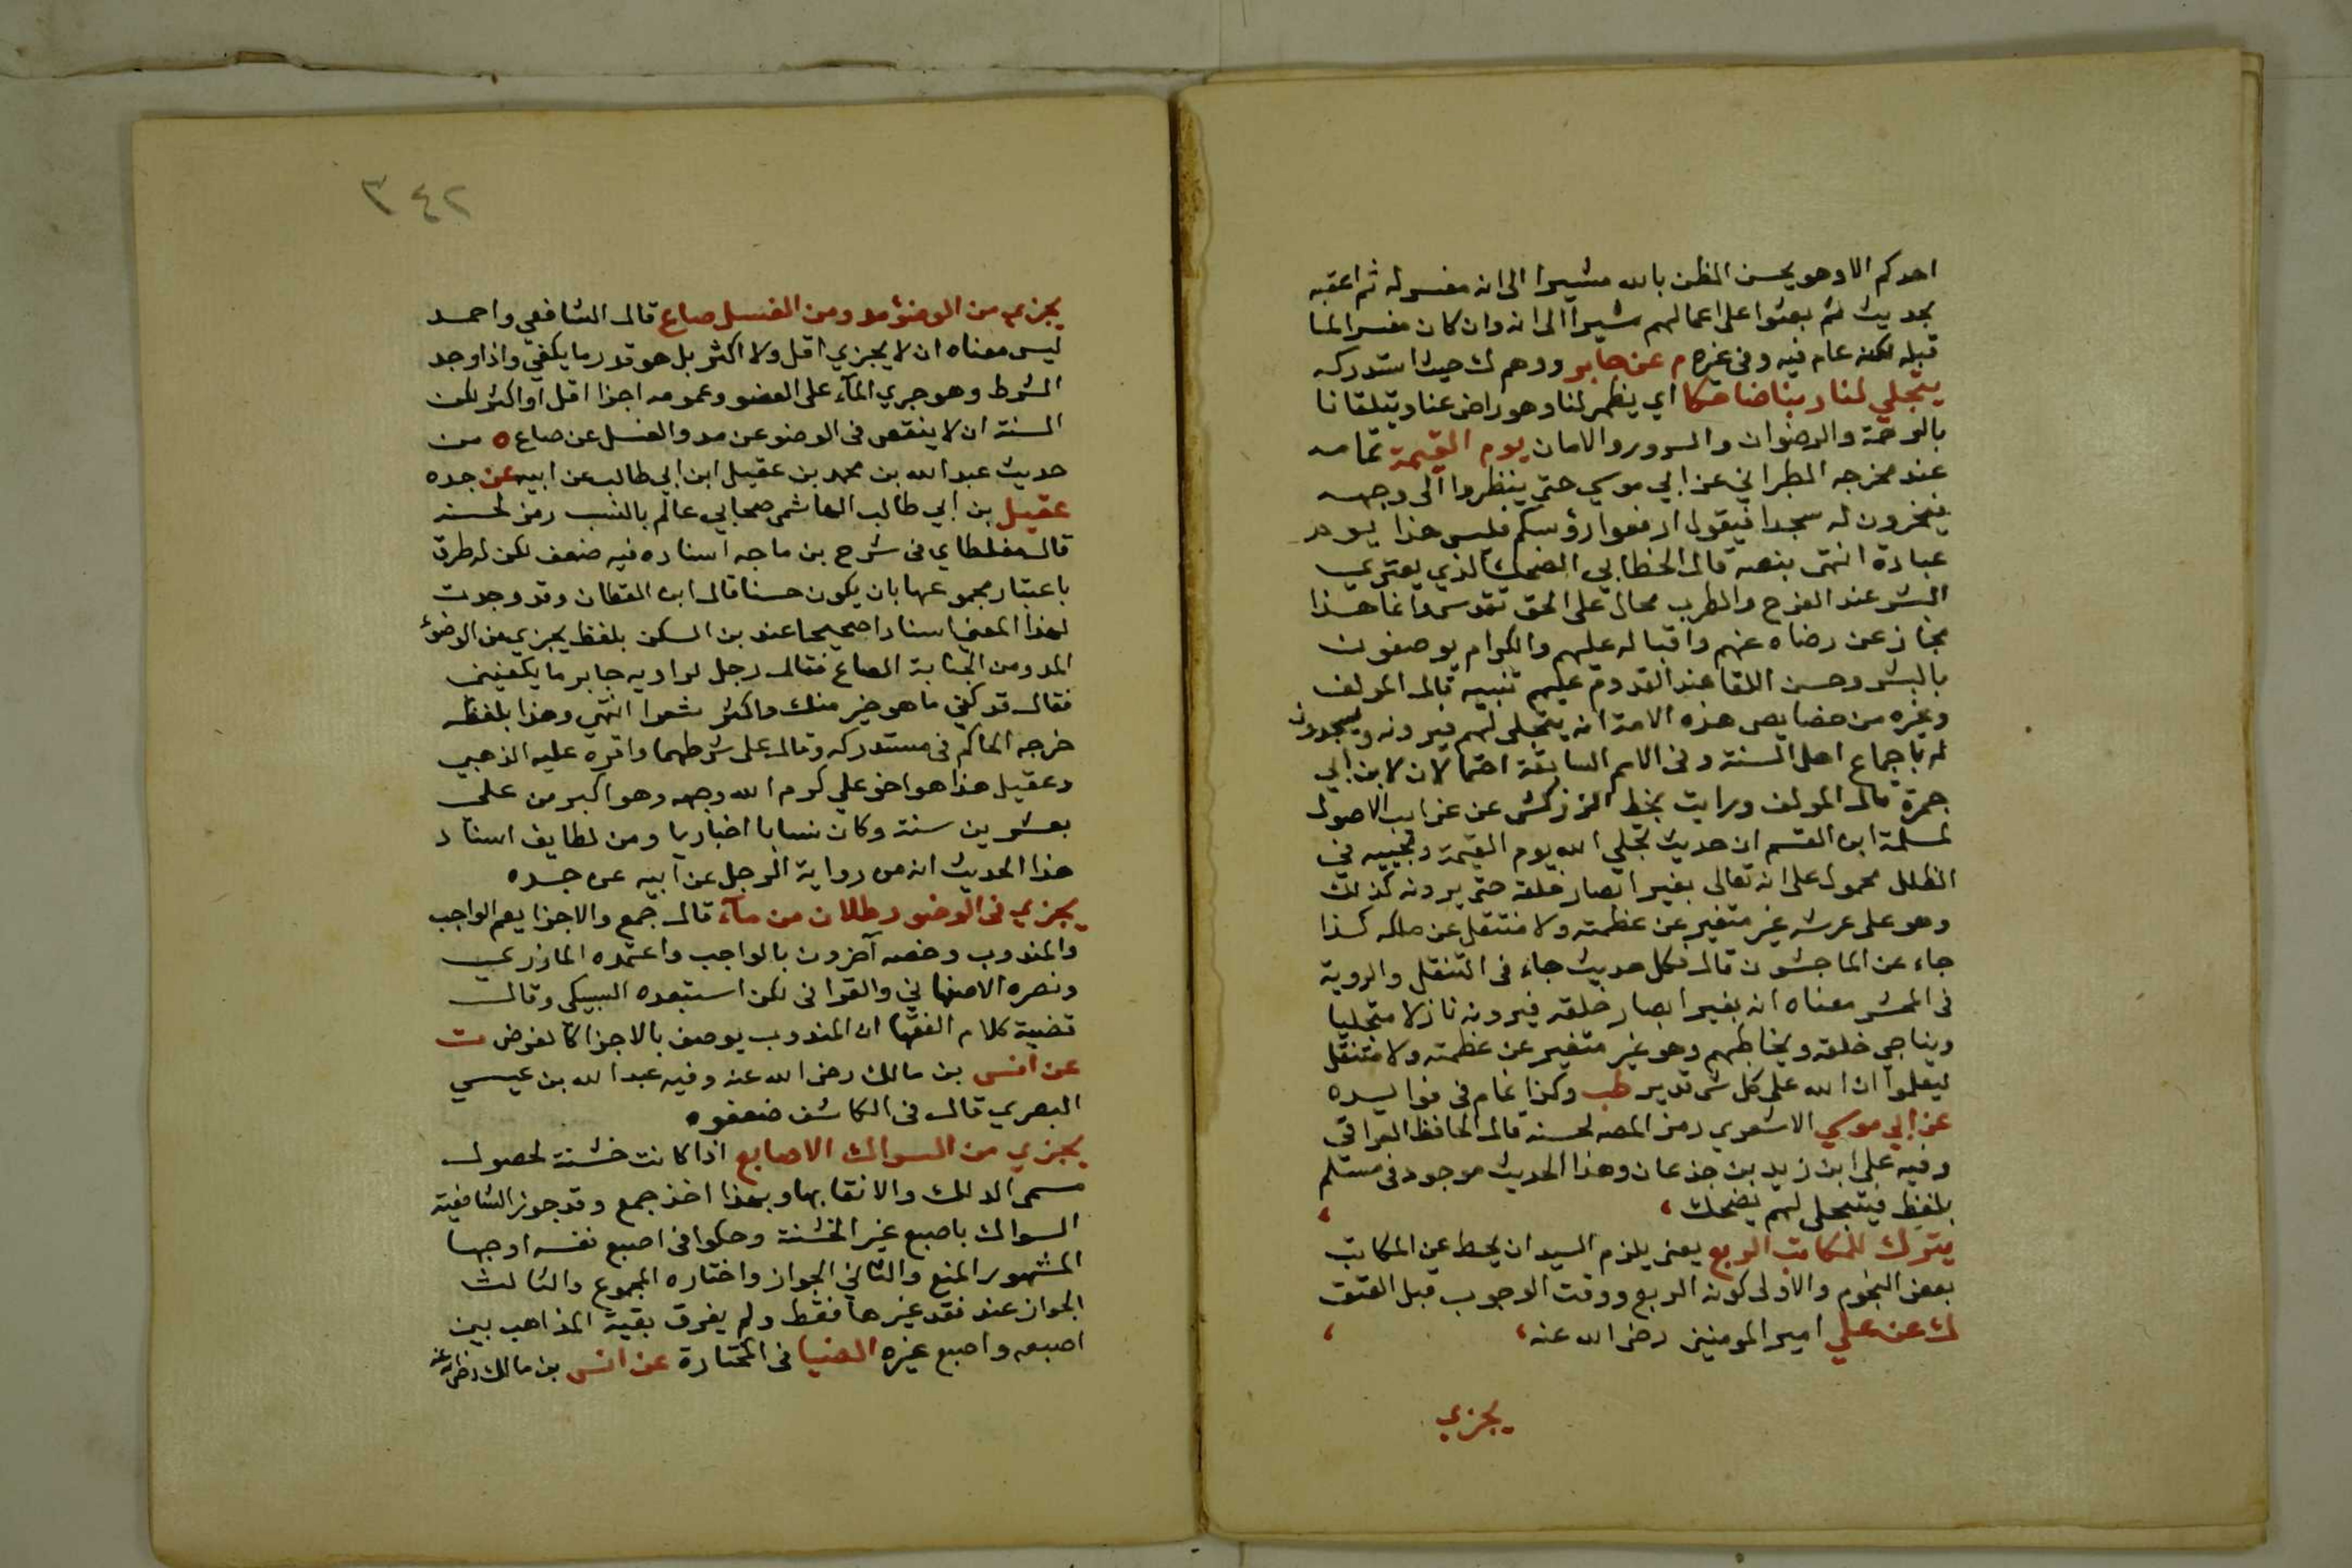 احدكم الا وهو يحسن الظن بالله مشيرا الى انه مفسر له ثم اعقبه
بحديث ثم بعثوا على اعمالهم مشيرا الى انه وان كان مفسرا لما
قبله لكنه عام فيه وفي غيره م عن جابر ووهم ك حيث استدركه
يتجلي لنا ربنا ضاحكا اي يظهر لنا وهو راض عنا ويتلقانا
بالرحمة والرضوان والسرور والامان يوم القيمة تمامه
عند مخرجه الطبراني عن ابي موسي حتى ينظروا الى وجهه
فيخرون له سجدا فيقول ارفعوا رؤسكم فليس هذا يوم
عبادة انتهى بنصه قال الخطابي الضحك الذي يعتري
البشر عند الفرح والطرب محال على الحق تقدس وانما هذا
مجاز عن رضاه عنهم واقباله عليهم والكرام يوصفون
بالبشر وحسن اللقا عند القدوم عليهم تنبيه قال المولف
وغيره من خصايص هذه الامة انه يتجلى لهم فيرونه ويسجدون
له باجماع اهل السنة وفي الامم السابقة احتمالان لابن ابي
جمرة قال المولف ورايت بخط الزركشى عن غرايب الاصول
لمسلمة ابن القسم ان حديث تجلي الله يوم القيمة ومجييه في
الظلل محمول على انه تعالى يغير ابصار خلقه حتى يرونه كذلك
وهو على عرشه غير متغير عن عظمته ولا منتقل عن ملكه كذا
جاء عن الماجشون قال فكل حديث جاء في التنقل والروية
في المحشر معناه انه يغير ابصار خلقه فيرونه نازلا متجليا
ويناجي خلقه ويخاطبهم وهو غير متغير عن عظمته ولا منتقل
ليعلموا ان الله على كل شى قدير طب وكذا تمام في فوايده
عن ابي موسي الاشعري رمز المصه لحسنه قال الحافظ العراقي
وفيه على ابن زيد بن جذعان وهذا الحديث موجود في مسلم
بلفظ فيتجلى لهم يضحك
يترك للمكاتب الربع يعنى يلزم السيد ان يحط عن المكاتب
بعض النجوم والاولى كونه الربع ووقت الوجوب قبل العتق
ك عن علي امير المومنين رضى الله عنه
يجزي
٣٤٢
يجزي من الوضؤ مد ومن الغسل صاع قال الشافعي واحمد
ليس معناه ان لا يجزي اقل ولا اكثر بل هو قدر ما يكفي واذا وجد
الشرط وهو جري المآء على العضو وعمومه اجزا اقل او اكثر لكن
السنة ان لا ينقص في الوضو عن مد والغسل عن صاع ه من
حديث عبد الله بن محمد بن عقيل ابن ابي طالب عن ابيه عن جده
عقيل بن ابي طالب الهاشمى صحابي عالم بالنسب رمز لحسنه
قال مغلطاي في شرح بن ماجه اسناده فيه ضعف لكن له طرق
باعتبار مجموعها بان يكون حسنا قال ابن القطان وقد وجدت
لهذا المعني اسنادا صحيحا عند بن السكن بلفظ يجزي من الوضؤ
المد ومن الجنابة الصاع فقال رجل لراويه جابر ما يكفيني
فقال قد كفي ما هو خير منك واكثر شعرا انتهي وهذا بلفظه
خرجه الحاكم في مستدركه وقال على شرطهما واقره عليه الذهبي
وعقيل هذا هو اخو علي كرم الله وجهه وهو اكبر من علي
بعشرين سنة وكان نسابا اخباريا ومن لطايف اسناد
هذا الحديث انه من رواية الرجل عن ابيه عن جده
يجزي في الوضو رطلان من مآء قال جمع والاجزا يعم الواجب
والمندوب وخصه آخرون بالواجب واعتمده المازري
ونصره الاصفهاني والقرافي لكن استبعده السبكي وقال
قضية كلام الفقها ان المندوب يوصف بالاجزا كالفرض ت
عن انس بن مالك رضى الله عنه وفيه عبد الله بن عيسي
البصري قال في الكاشف ضعفوه
يجزي من السواك الاصابع اذا كانت خشنة لحصول
مسمى الدلك والانقا بها وبهذا اخذ جمع وقد جوز الشافعية
السواك باصبع غير الخشنة وحكوا في اصبع نفسه اوجها
المشهور المنع والثاني الجواز واختاره المجموع والثالث
الجواز عند فقد غيرها فقط ولم يفرق بقية المذاهب بين
اصبعه واصبع غيره الضيا في المختارة عن انس بن مالك رضى الله عنه